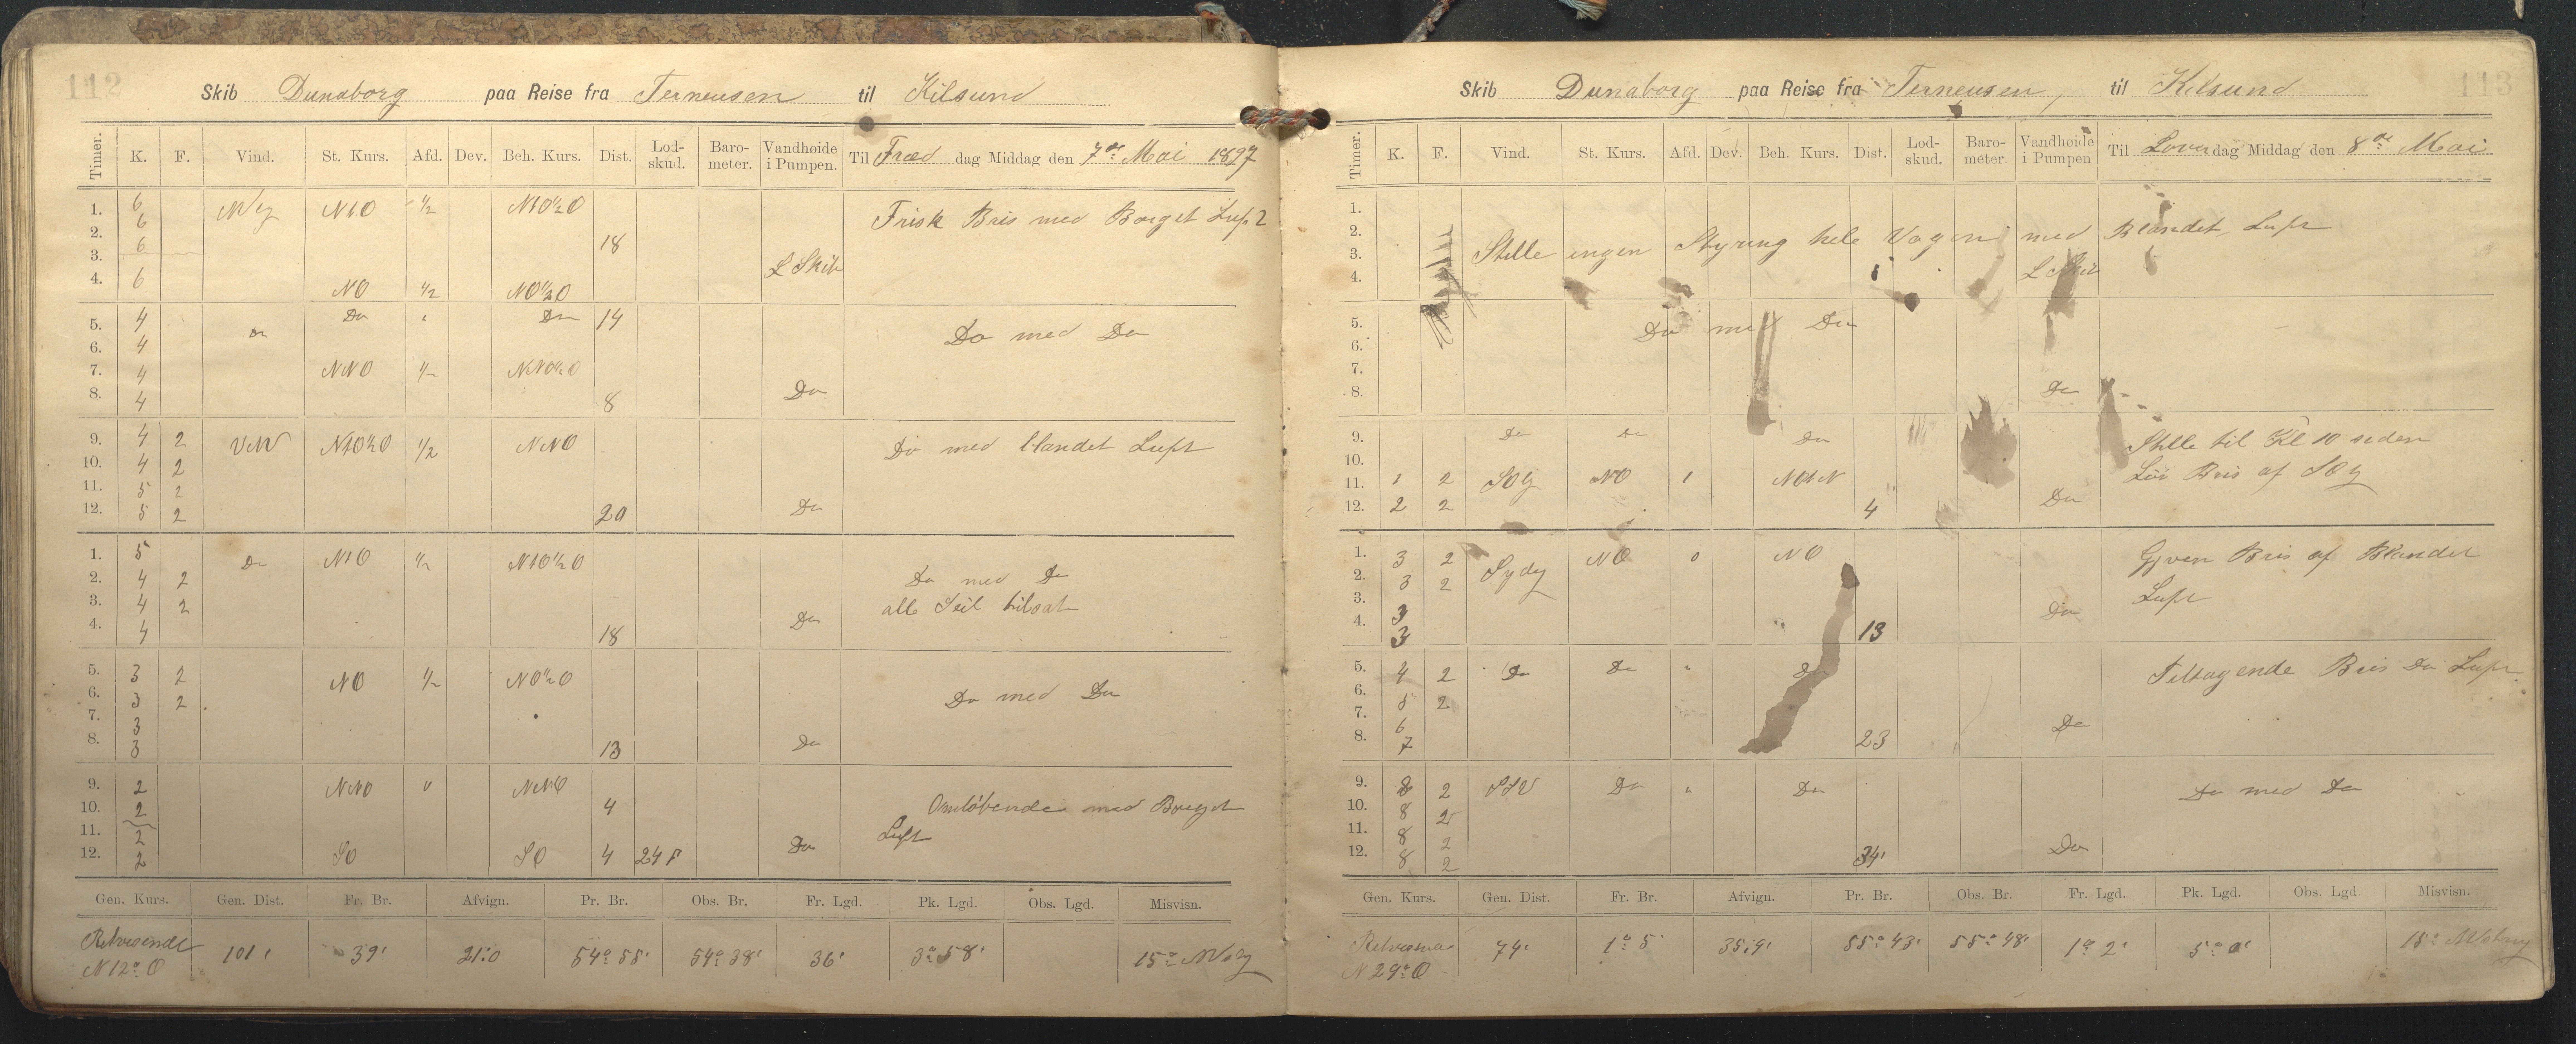 112
Skib Dunaborg paa Reise fra Terneusen til Kilsund
Timer. K. F. Vind. St. Kurs. Afd. Dev. Beh. Kurs. Dist. Lod-skud. Baro-meter. Vandhøide i Pumpen. Til Fred dag Middag den 7de Mai 1897
1. 6 NtO 1/2 NtO1/2O Frisk Bris med Borget Luft
2. 6
3. 6 18
4. 6 NO 1/2 NO1/2O L Skib
5. 4 Do Do Do 14 Do med Do
6. 4
7. 4 NNO 1/2 NNO1/2O
8. 4 8 Do
9. 4 2 VNV NtO1/2O 1/2 NNO Do med blandet Luft
10. 4 2
11. 5 2
12. 5 2 20 Do
1. 5 Do NtO 1/2 NtO1/2O
2. 4 2 Do med Do
3. 4 2 alle Seil tilsat
4. 4 18 Do
5. 3 2 NO 1/2 NO1/2O
6. 3 2 Do med Do
7. 3
8. 3 13 Do
9. 2 NNO 0 NNO
10. 2 4 Omløbende med Borget
11. 2 Luft
12. 2 SO SO 4 24 F Do
Gen. Kurs. Gen. Dist. Fr. Br. Afvign. Pr. Br. Obs. Br. Fr. Lgd. Pk. Lgd. Obs. Lgd. Misvisn.
Retvisende N 12° O 101' 39' 21:0 54° 55' 54° 38' 36' 3° 58' 15°
113
Skib Dunaborg paa Reise fra Terneusen, til Kilsund
Timer. K. F. Vind. St. Kurs. Afd. Dev. Beh. Kurs. Dist. Lod-skud. Baro-meter. Vandhøide i Pumpen Til Løverdag Middag den 8de Mai
1.
2. Stille ingen Styring hele Vagen med Blandet Luft
3.
4. L Skib
5. Do med Do
6.
7.
8. Do
9. Do Do Do Stille til Kl 10 siden
10. Løi Bris af SOlg
11. 1 2 SOlg NO 1 NOtN
12. 2 2 4 Do
1. 3 2 Sydlg NO 0 NO Gjven Bris af Blandet
2. 3 2 Luft
3. 3 Do
4. 3 13
5. 4 2 Do Do " Do Tiltagende Bris Do Luft
6. 5 2
7. 6
8. 7 23 Do
9. 8 2 SSV Do " Do Do med Do
10. 8 2
11. 8 2
12. 8 2 34' Do
Gen. Kurs. Gen. Dist. Fr. Br. Afvign. Pr. Br. Obs. Br. Fr. Lgd. Pk. Lgd. Obs. Lgd. Misvisn.
N 29° O 74' 1° 5' 35:9' 55° 43' 55° 48' 1° 2' 5° 0' 15°